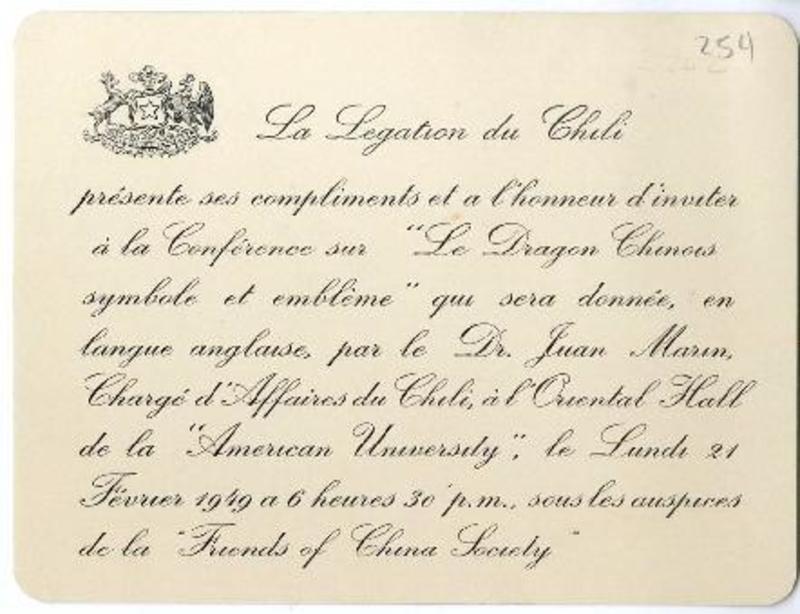 254
La Legation du Chili
présente ses compliments et a l'honneur d'inviter
à la Conférence sur "Le Dragon Chinois
symbole et emblême" qui sera donnée, en
langue anglaise, par le Dr. Juan Marin,
Chargé d'Affaires du Chili, à l'Oriental Hall
de la "American University", le Lundi 21
Février 1949 a 6 heures 30 p.m., sous les auspices
de la "Friends of China Society"